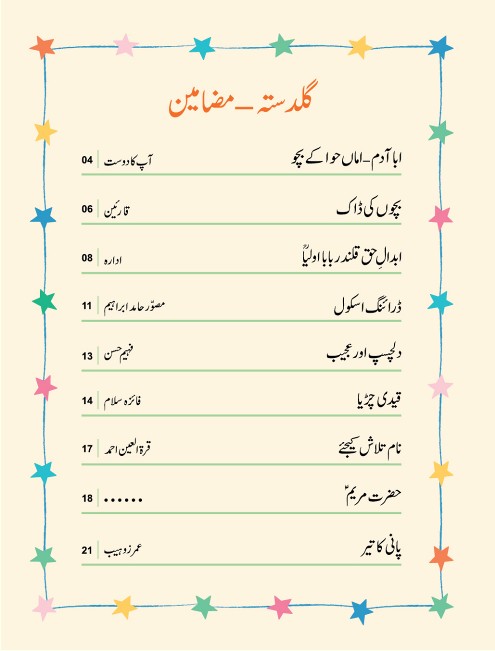 گلدستہ – مضامین
ابا آدم – اماں حوا کے بچو آپ کا دوست 04
بچوں کی ڈاک قارئین 06
ابدالِ حق قلندر بابا اولیاؒ ادارہ 08
ڈرائنگ اسکول مصوّر حامد ابراہیم 11
دلچسپ اور عجیب فہیم حسن 13
قیدی چڑیا فائزہ سلام 14
نام تلاش کیجئے قرۃ العین احمد 17
حضرت مریمؑ ...... 18
پانی کا تیر عمر زوہیب 21